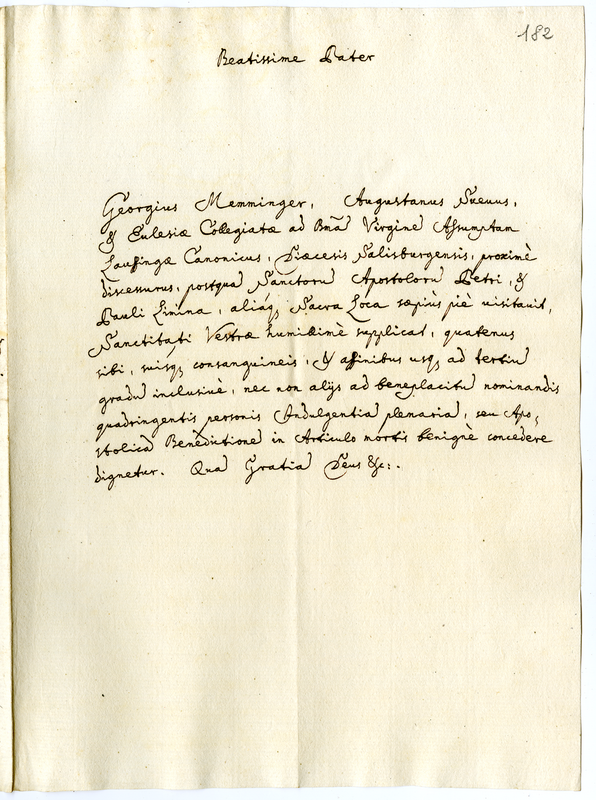 182
Beatissime Pater
Georgius Memminger, Augustanus Suevus,
& Eclesiæ Collegiatæ ad Bmã Virginẽ Assumptam
Lauffingæ Canonicus, Diæcesis Salisburgensis, proximè
discessurus, postquã Sanctorũ Apostolorũ Petri, &
Pauli Limina, aliáq; Sacra Loca sæpius piè visitavit,
Sanctitati Vestræ humillimè supplicat, quatenus
sibi, suisq; consanguineis, & affinibus usq; ad tertiũ
gradũ inclusivè, nec non alijs ad beneplacitũ nominandis
quadringentis personis Indulgentiã plenariã, seu Apo,
stolicã Benedictionẽ in Articulo mortis benignè concedere
dignetur. Quã Gratiã Deus &c:.